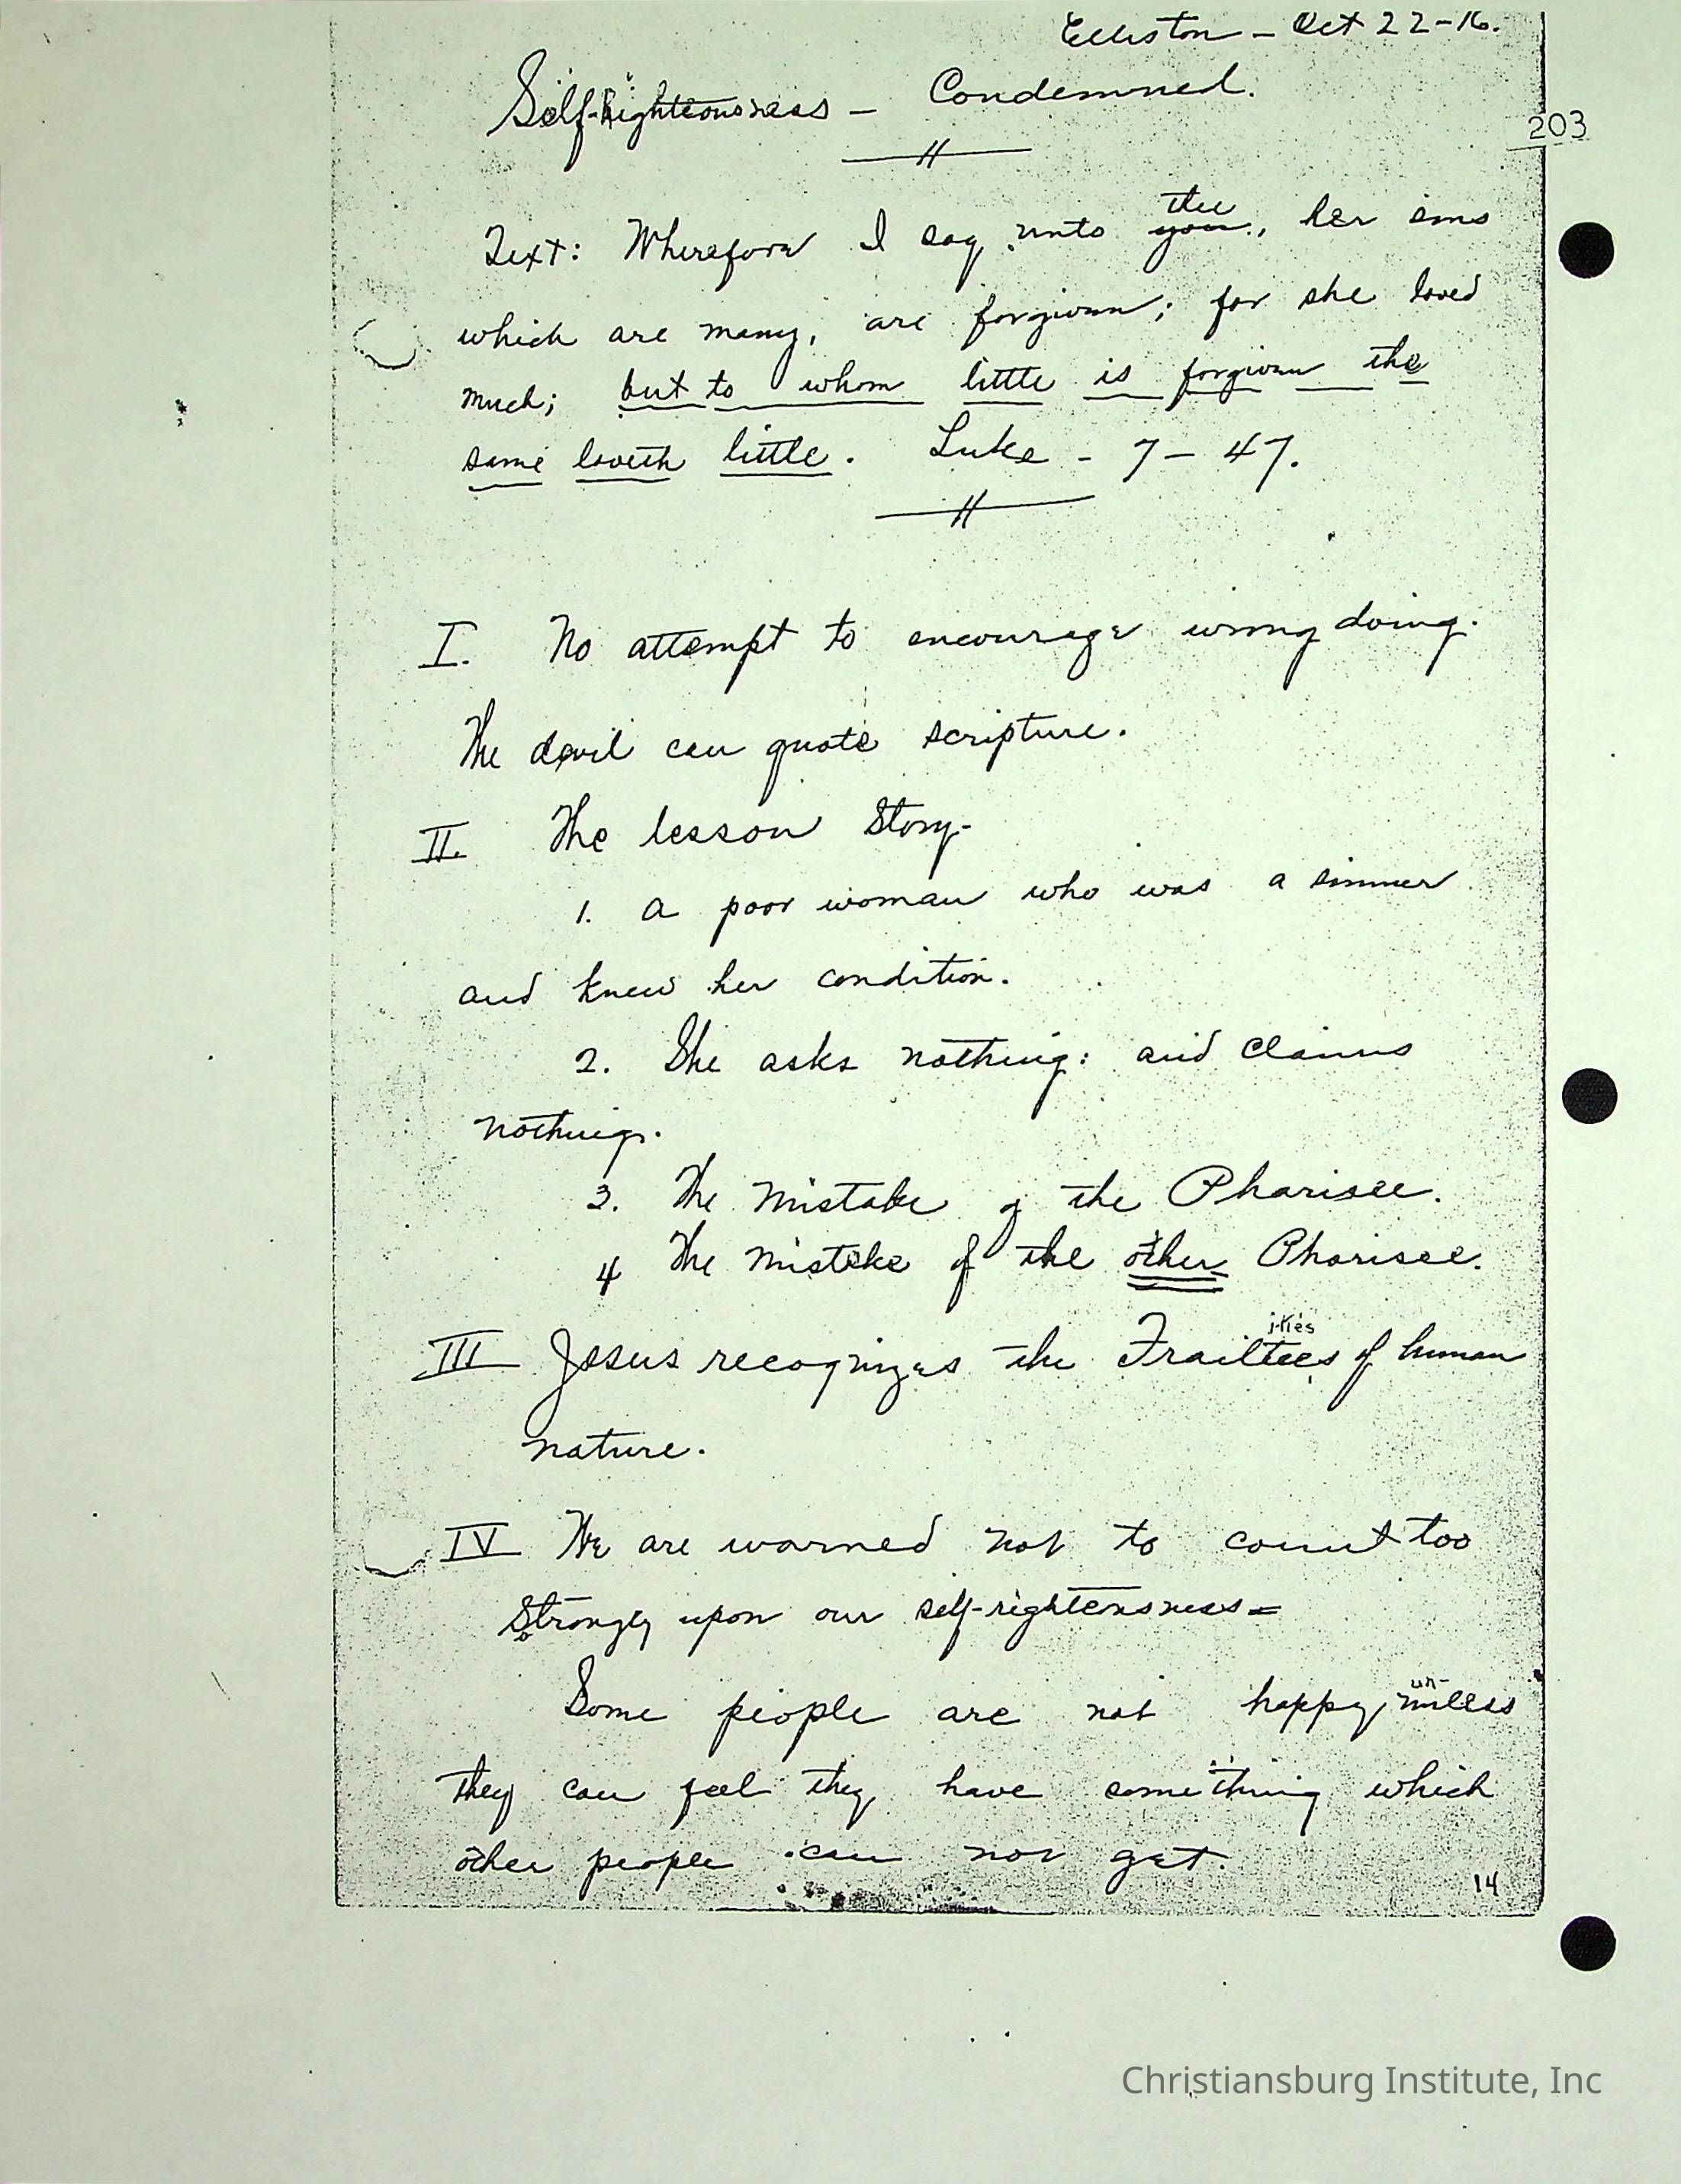 Elliston - Oct 22-16.
Self-Righteousness - Condemned.
203
thee
Text: Wherefore I say unto you, her sins
which are many, are forgiven; for she loved
much; but to whom little is forgiven the
same loveth little. Luke - 7 - 47.
I. No attempt to encourage wrong doing.
The devil can quote scripture.
II. The lesson Story-
1. A poor woman who was a sinner
and knew her condition.
2. She asks nothing: and claims
nothing.
3. The mistake of the Pharisee.
4 The mistake of the other Pharisee.
ities
III Jesus recognizes the Frailtees of human
nature.
IV We are warned not to count too
Strongly upon our self-righteousness=
un-
Some people are not happy, unless
they can feel they have something which
other people can not get.
14
Christiansburg Institute, Inc